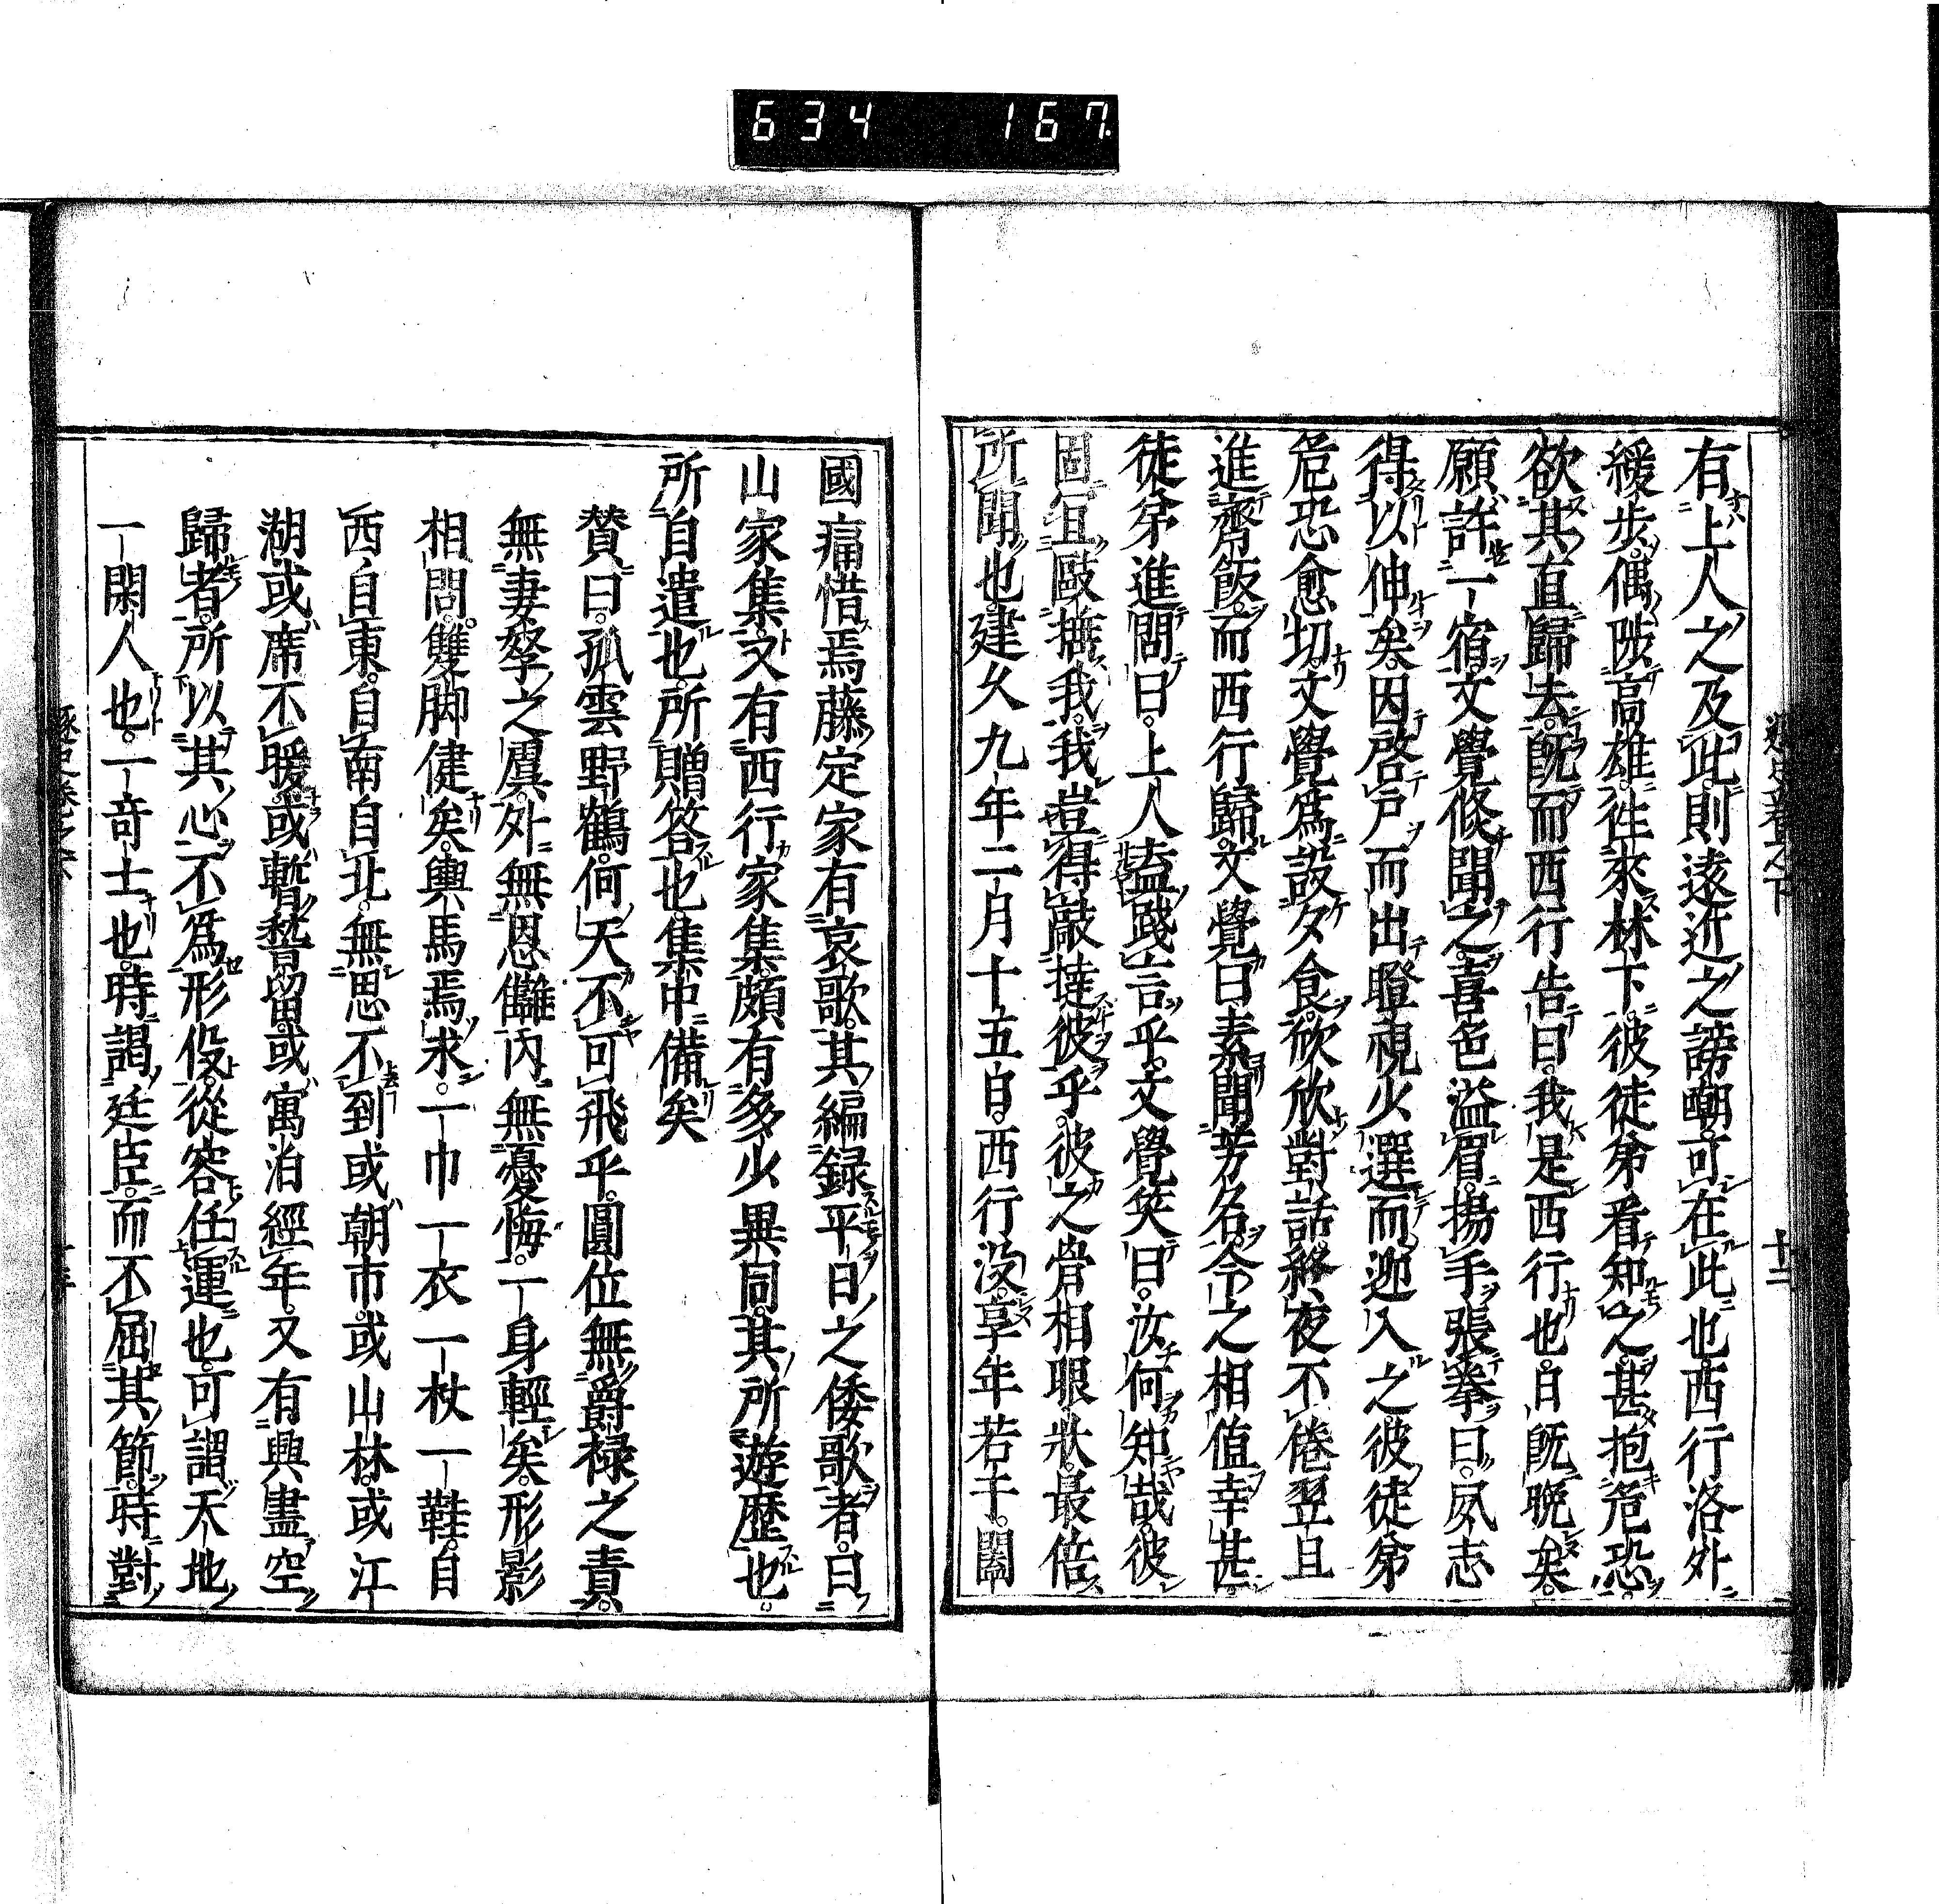 634 167
有上人之及此則遠近之謗嘲可在此也西行洛外
緩步偶陟高雄徃來林下彼徒弟看知之甚抱危恐
欲其直歸去既而西行告曰我是西行也日既晚矣
願許一宿文覺倏聞之喜色溢眉揚手張拳曰夙志
得以伸矣因啓戶而出瞪視火選而迎入之彼徒弟
危恐愈切文覺爲設夕食欣欣對話終夜不倦翌旦
進齋飯而西行歸文覺曰素聞芳名令之相值幸甚
徒弟進問曰上人盍踐言乎文覺笑曰汝何知哉彼
固宜毆擄我我豈得敲撻彼乎彼之骨相眼狀最倍
所聞也建久九年二月十五日西行沒享年若干闔
國痛惜焉藤定家有哀歌其編録平日之倭歌者曰
山家集又有西行家集頗有多少異同其所遊歷也
所自遣也所贈答也集中備矣
賛曰孤雲野鶴何天不可飛乎圓位無爵禄之責
無妻孥之虞外無恩讎內無憂悔一身輕矣形影
相問雙脚健矣輿馬焉求一巾一衣一杖一鞋自
西自東自南自北無思不到或朝市或山林或江
湖或席不暖或暫暫留或寓泊經年又有興盡空
歸者所以其心不爲形役從容任運也可謂天地
一閑人也一奇士也時謁廷臣而不屈其節時對